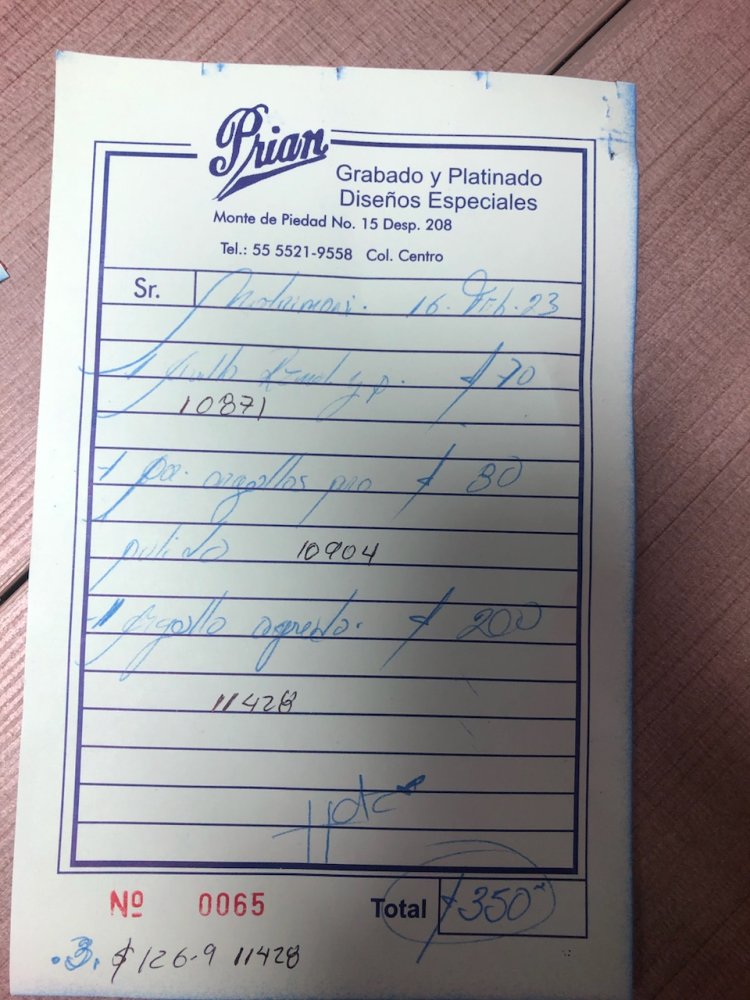 Prian
Grabado y Platinado
Diseños Especiales
Monte de Piedad No. 15 Desp. 208
Tel.: 55 5521-9558 Col. Centro
Sr. 16. Feb. 23
1 $ 70
10871
1 pa. argollas $ 80
pulido 10904
1 argolla $ 200
11428
Nº 0065 Total $350
.3. $126-9 11428